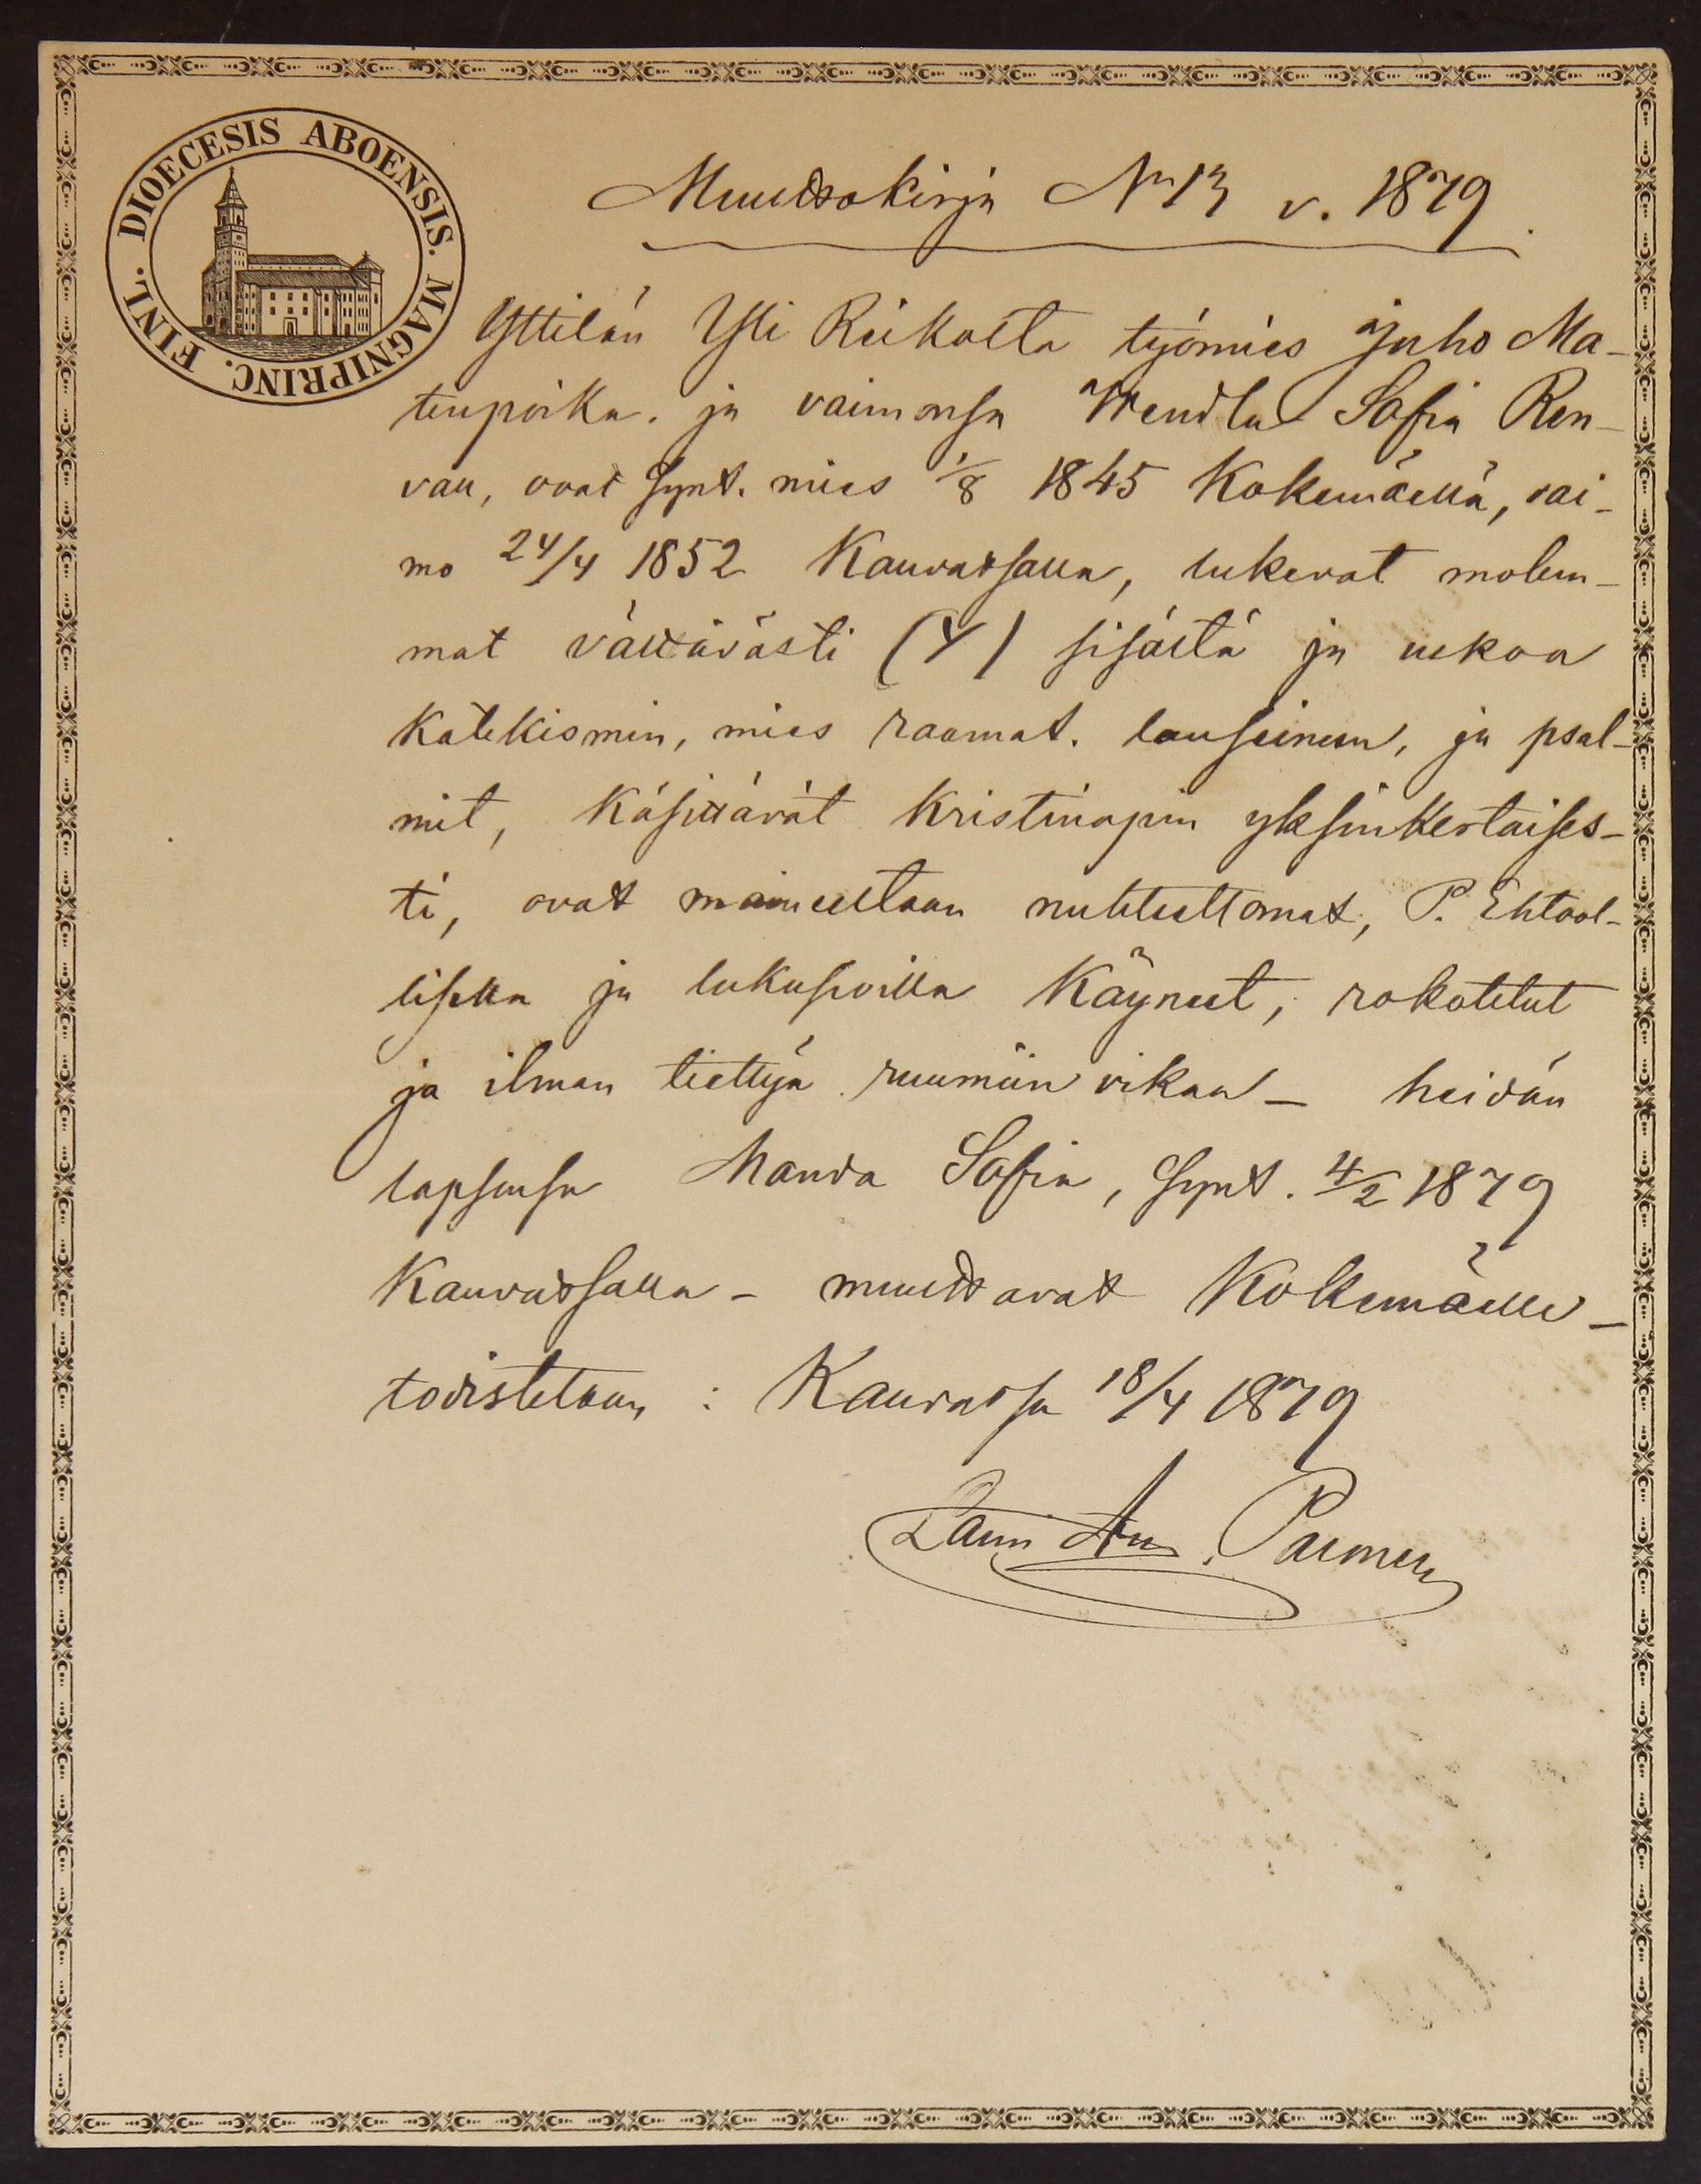 DIOECESIS ABOENSIS. MAGNIPRINC. FINL.
Muuttokirja No 13 v. 1879.
Yttilän Yli Reikosta työmies Juho Ma-
tinpoika. ja vaimonsa Wendla Sofia Ren-
vall, ovat synt. mies 1/8 1845 Kokemäellä, vai-
mo 24/4 1852 Kauvatsalla, lukevat molem-
mat välttävästi (Y) sisältä ja ulkoa
katekismin, mies raamat. lauseineen, ja psal-
mit, käsittävät kristinopin yksinkertaises-
ti, ovat maineeltaan nuhteettomat, P. Ehtool-
lisella ja lukusioilla käyneet, rokotetut
ja ilman tiettyä ruumiin vikaa – heidän
lapsensa Manda Sofia, synt. 4/2 1879
Kauvatsalla – muuttavat Kokemäelle –
todistetaan : Kauvatsa 18/4 1879